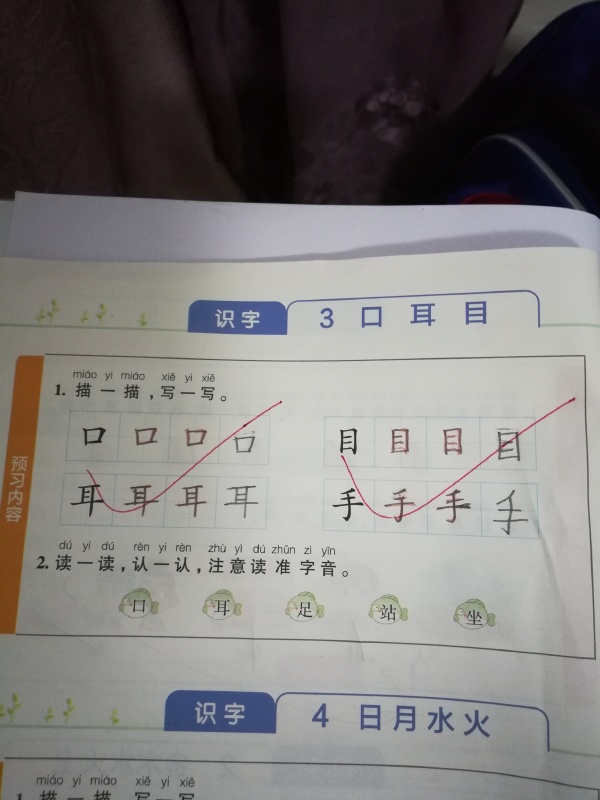 识字 3 口 耳 目
预习内容
miáo yi miáo xiě yi xiě
1. 描一描，写一写。
口 口 口 口 目 目 目 目
耳 耳 耳 耳 手 手 手 手
dú yi dú rèn yi rèn zhù yì dú zhǔn zì yīn
2. 读一读，认一认，注意读准字音。
口 耳 足 站 坐
识字 4 日月水火
miáo yi miáo xiě yi xiě
1. 描一描，写一写